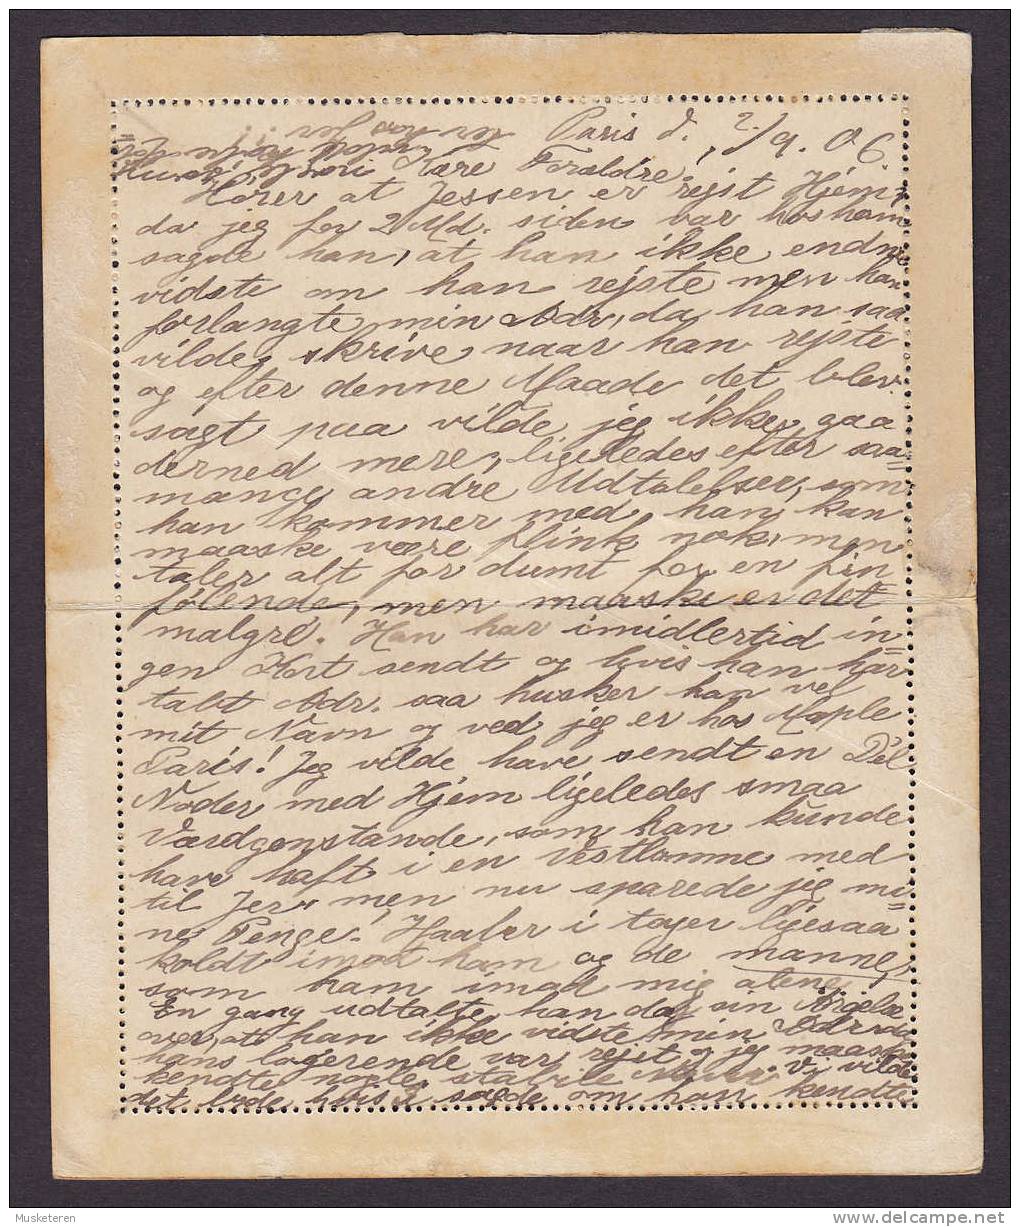 Paris d. 2/9. 06.
Kære Forældre!
Hører at Jessen er rejst Hjem,
da jeg for 2 Md. siden var hos ham
sagde han, at han ikke endnu
vidste om han rejste men han
forlangte min Adr, da han saa
vilde skrive naar han rejste
og efter denne Maade det blev
sagt paa vilde jeg ikke gaa
derned mere, ligeledes efter saa=
mange andre Udtalelser, som
han kommer med, han kan
maaske være flink nok, men
taler alt for dumt for en fin
følende, men maaske er det
malgré! Han har imidlertid in=
gen Kort sendt og hvis han har
tabt Adr. saa husker han vel
mit Navn og ved jeg er hos Maple
Paris! Jeg vilde have sendt en Del
Noder med Hjem ligeledes smaa
Værdgenstande, som han kunde
have haft i en Vestlomme med
til Jer, men nu sparede jeg mi=
ne Penge! Haaber i tager ligesaa
koldt imod ham og de manne,
som ham imod mig
En gang udtalte han da sin
over, at han ikke vidste min Adr da
hans logerende var rejst og jeg maaske
kendte nogle stabile Vi vilde
det lyde hvis I sagde om han kendte
Musketeren